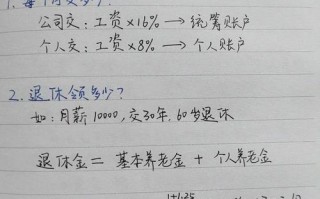 公司交：工资×16% → 统筹账户
个人交：工资×8% → 个人账户
2. 退休领多少？
如：月薪10000，交30年，60岁退休
退休金 = 基本养老金 + 个人养老金